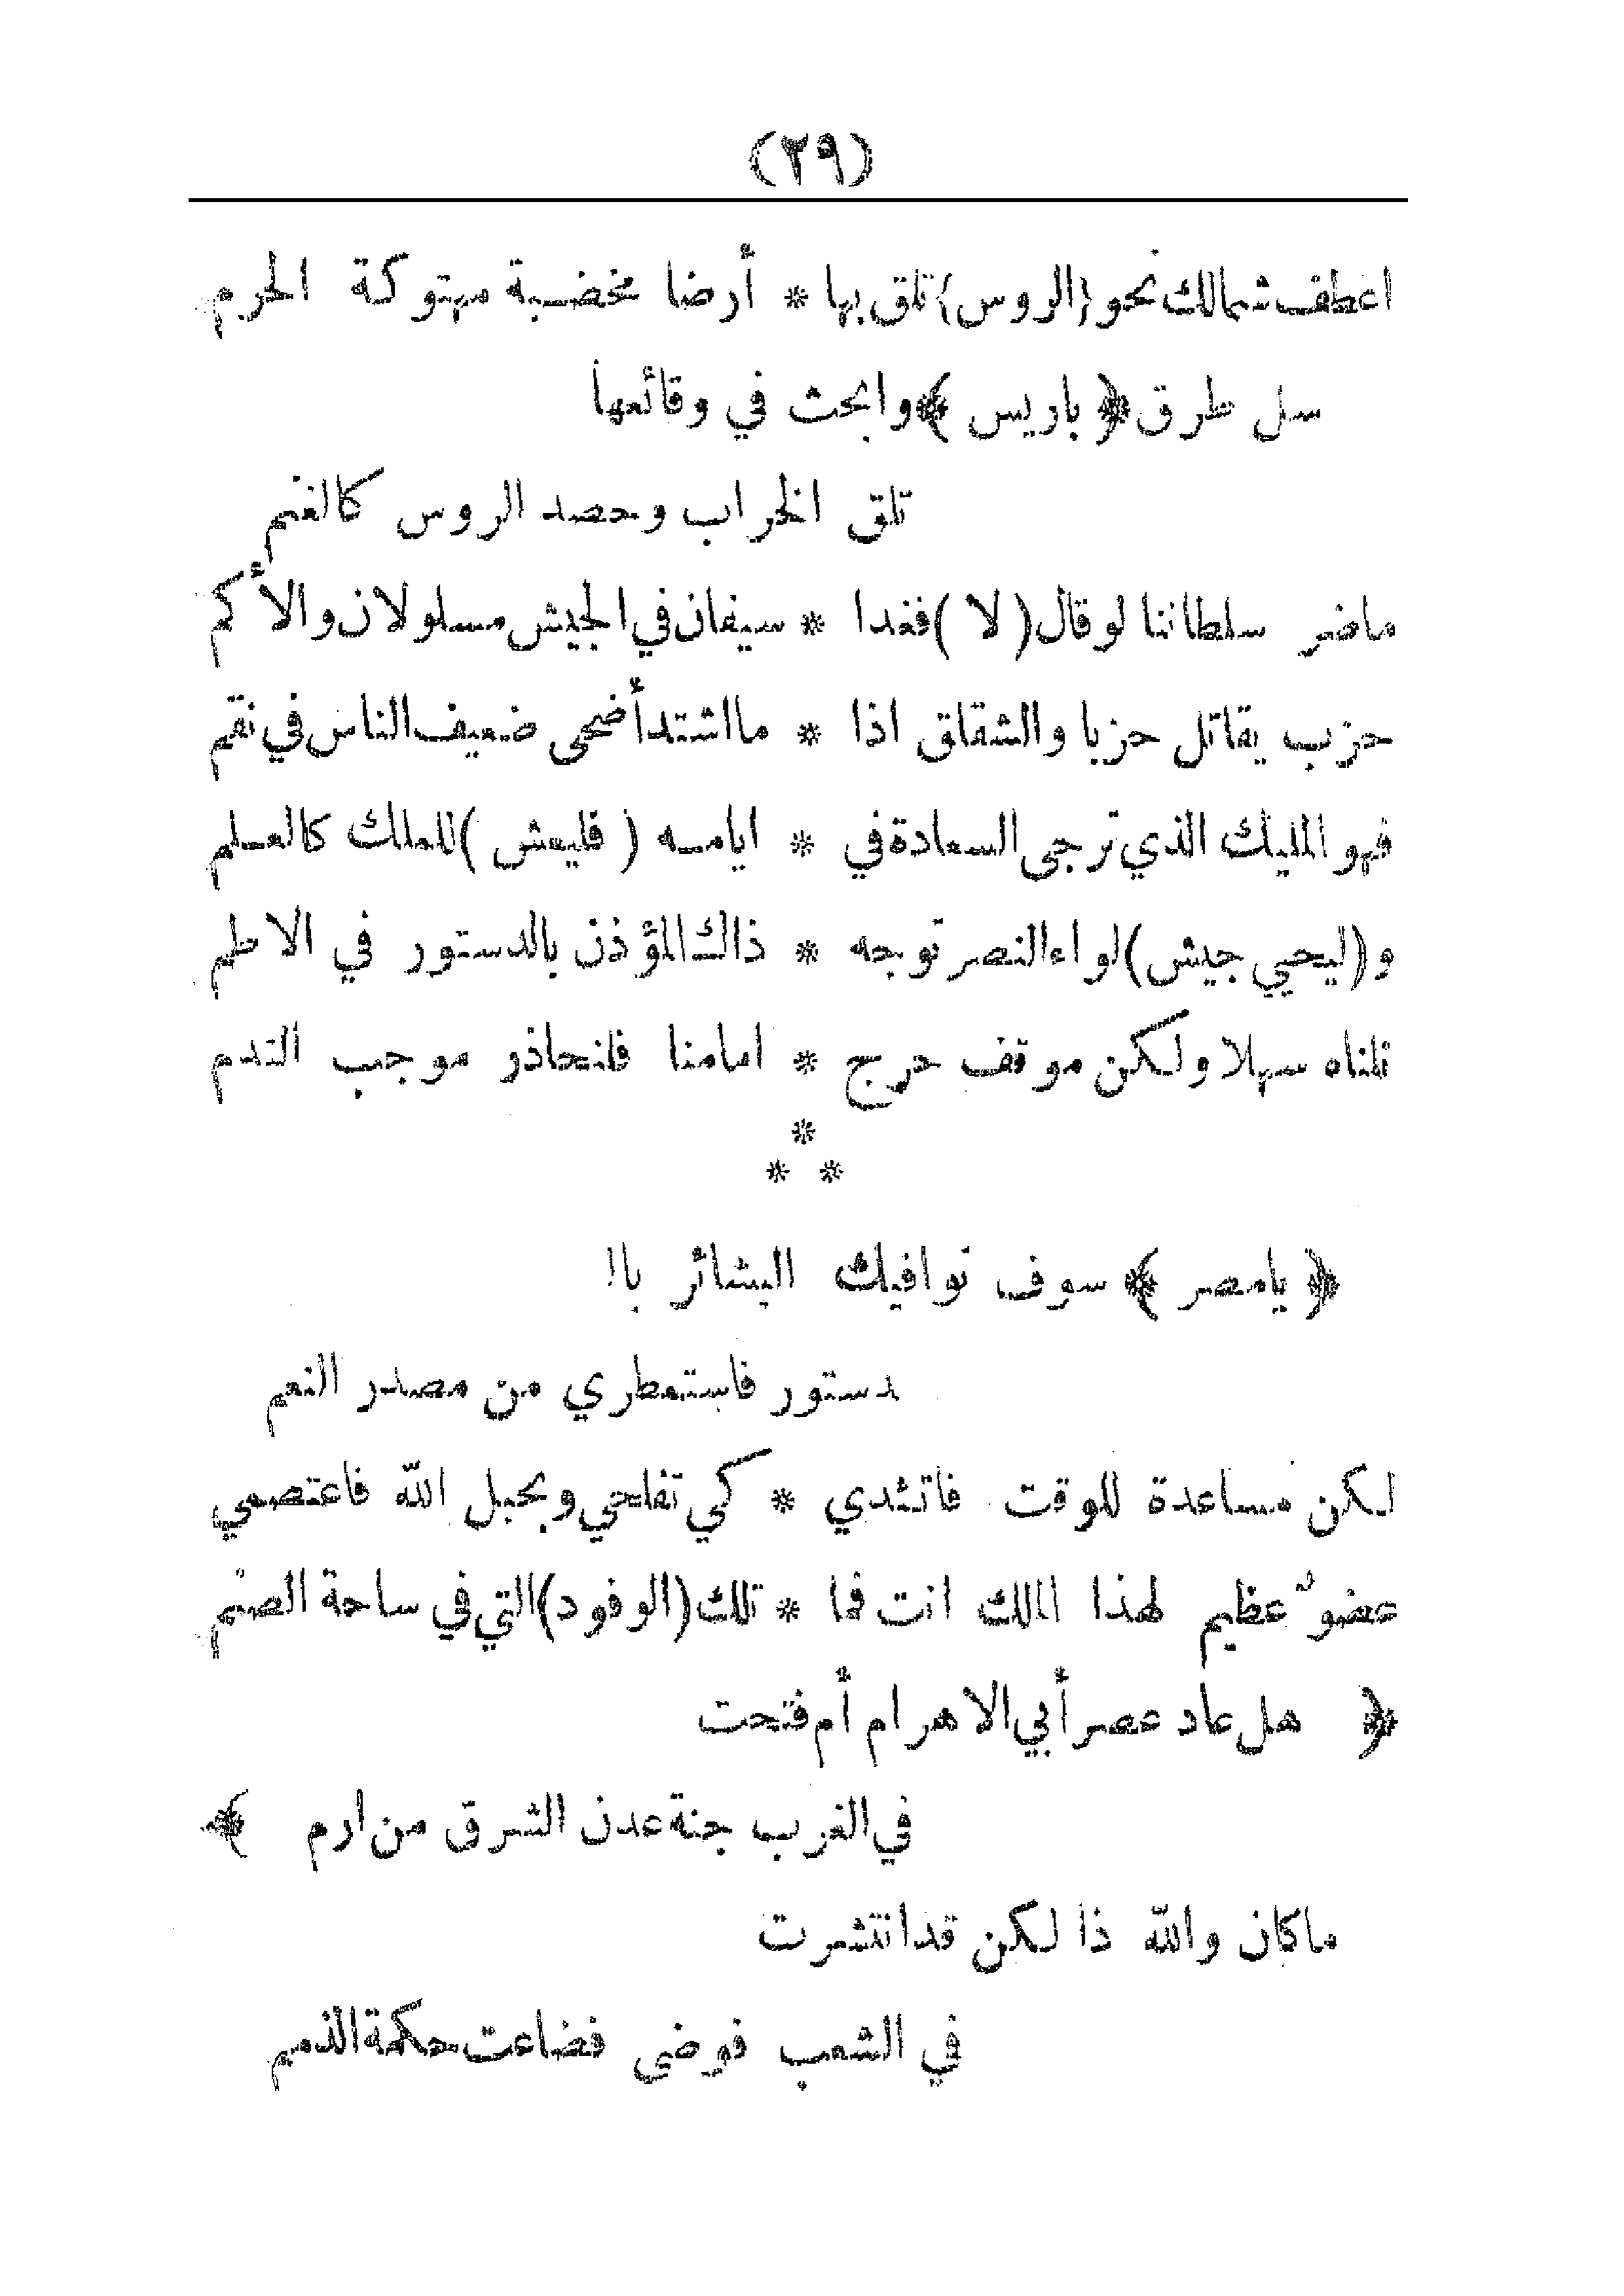 (٢٩)
اعطف شمالك نحو (الروس) تلق بها * أرضا مخضبة مهتوكة الحرم
سل طرق ﴿ باريس ﴾ وابحث في وقائعها
تلق الخراب وحصد الروس كالغنم
ماضر سلطاننا لو قال ( لا ) فغدا * سيفان في الجيش مسلولان والأكم
حزب يقاتل حزبا والشقاق اذا * ما اشتد أضحى ضعيف الناس في نقم
فهو المليك الذي ترجى السعادة في * ايامه ( فليعش ) للملك كالعلم
و (ليحيي جيش) لواء النصر توجه * ذاك المؤذن بالدستور في الاطم
نلناه سهلا ولكن موقف حرج * امامنا فلنحاذر موجب الندم
*
* *
﴿ يامصر ﴾ سوف توافيك البشائر بال
دستور فاستمطري من مصدر النعم
لكن مساعدة للوقت فاتئدي * كي تفلحي وبحبل الله فاعتصمي
عضوٌ عظيم لهذا الملك انت فما * تلك (الوفود) التي في ساحة الصنم
﴿ هل عاد عصر أبي الاهرام أم فتحت
في الغرب جنة عدن الشرق من ارم ﴾
ماكان والله ذا لكن قد انتشرت
في الشعب فوضى فضاعت حكمة الذمم